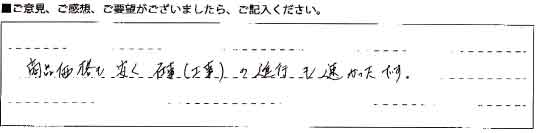 ■ご意見、ご感想、ご要望がございましたら、ご記入ください。
商品価格も安く 在庫(工事)の進行も速かったです。